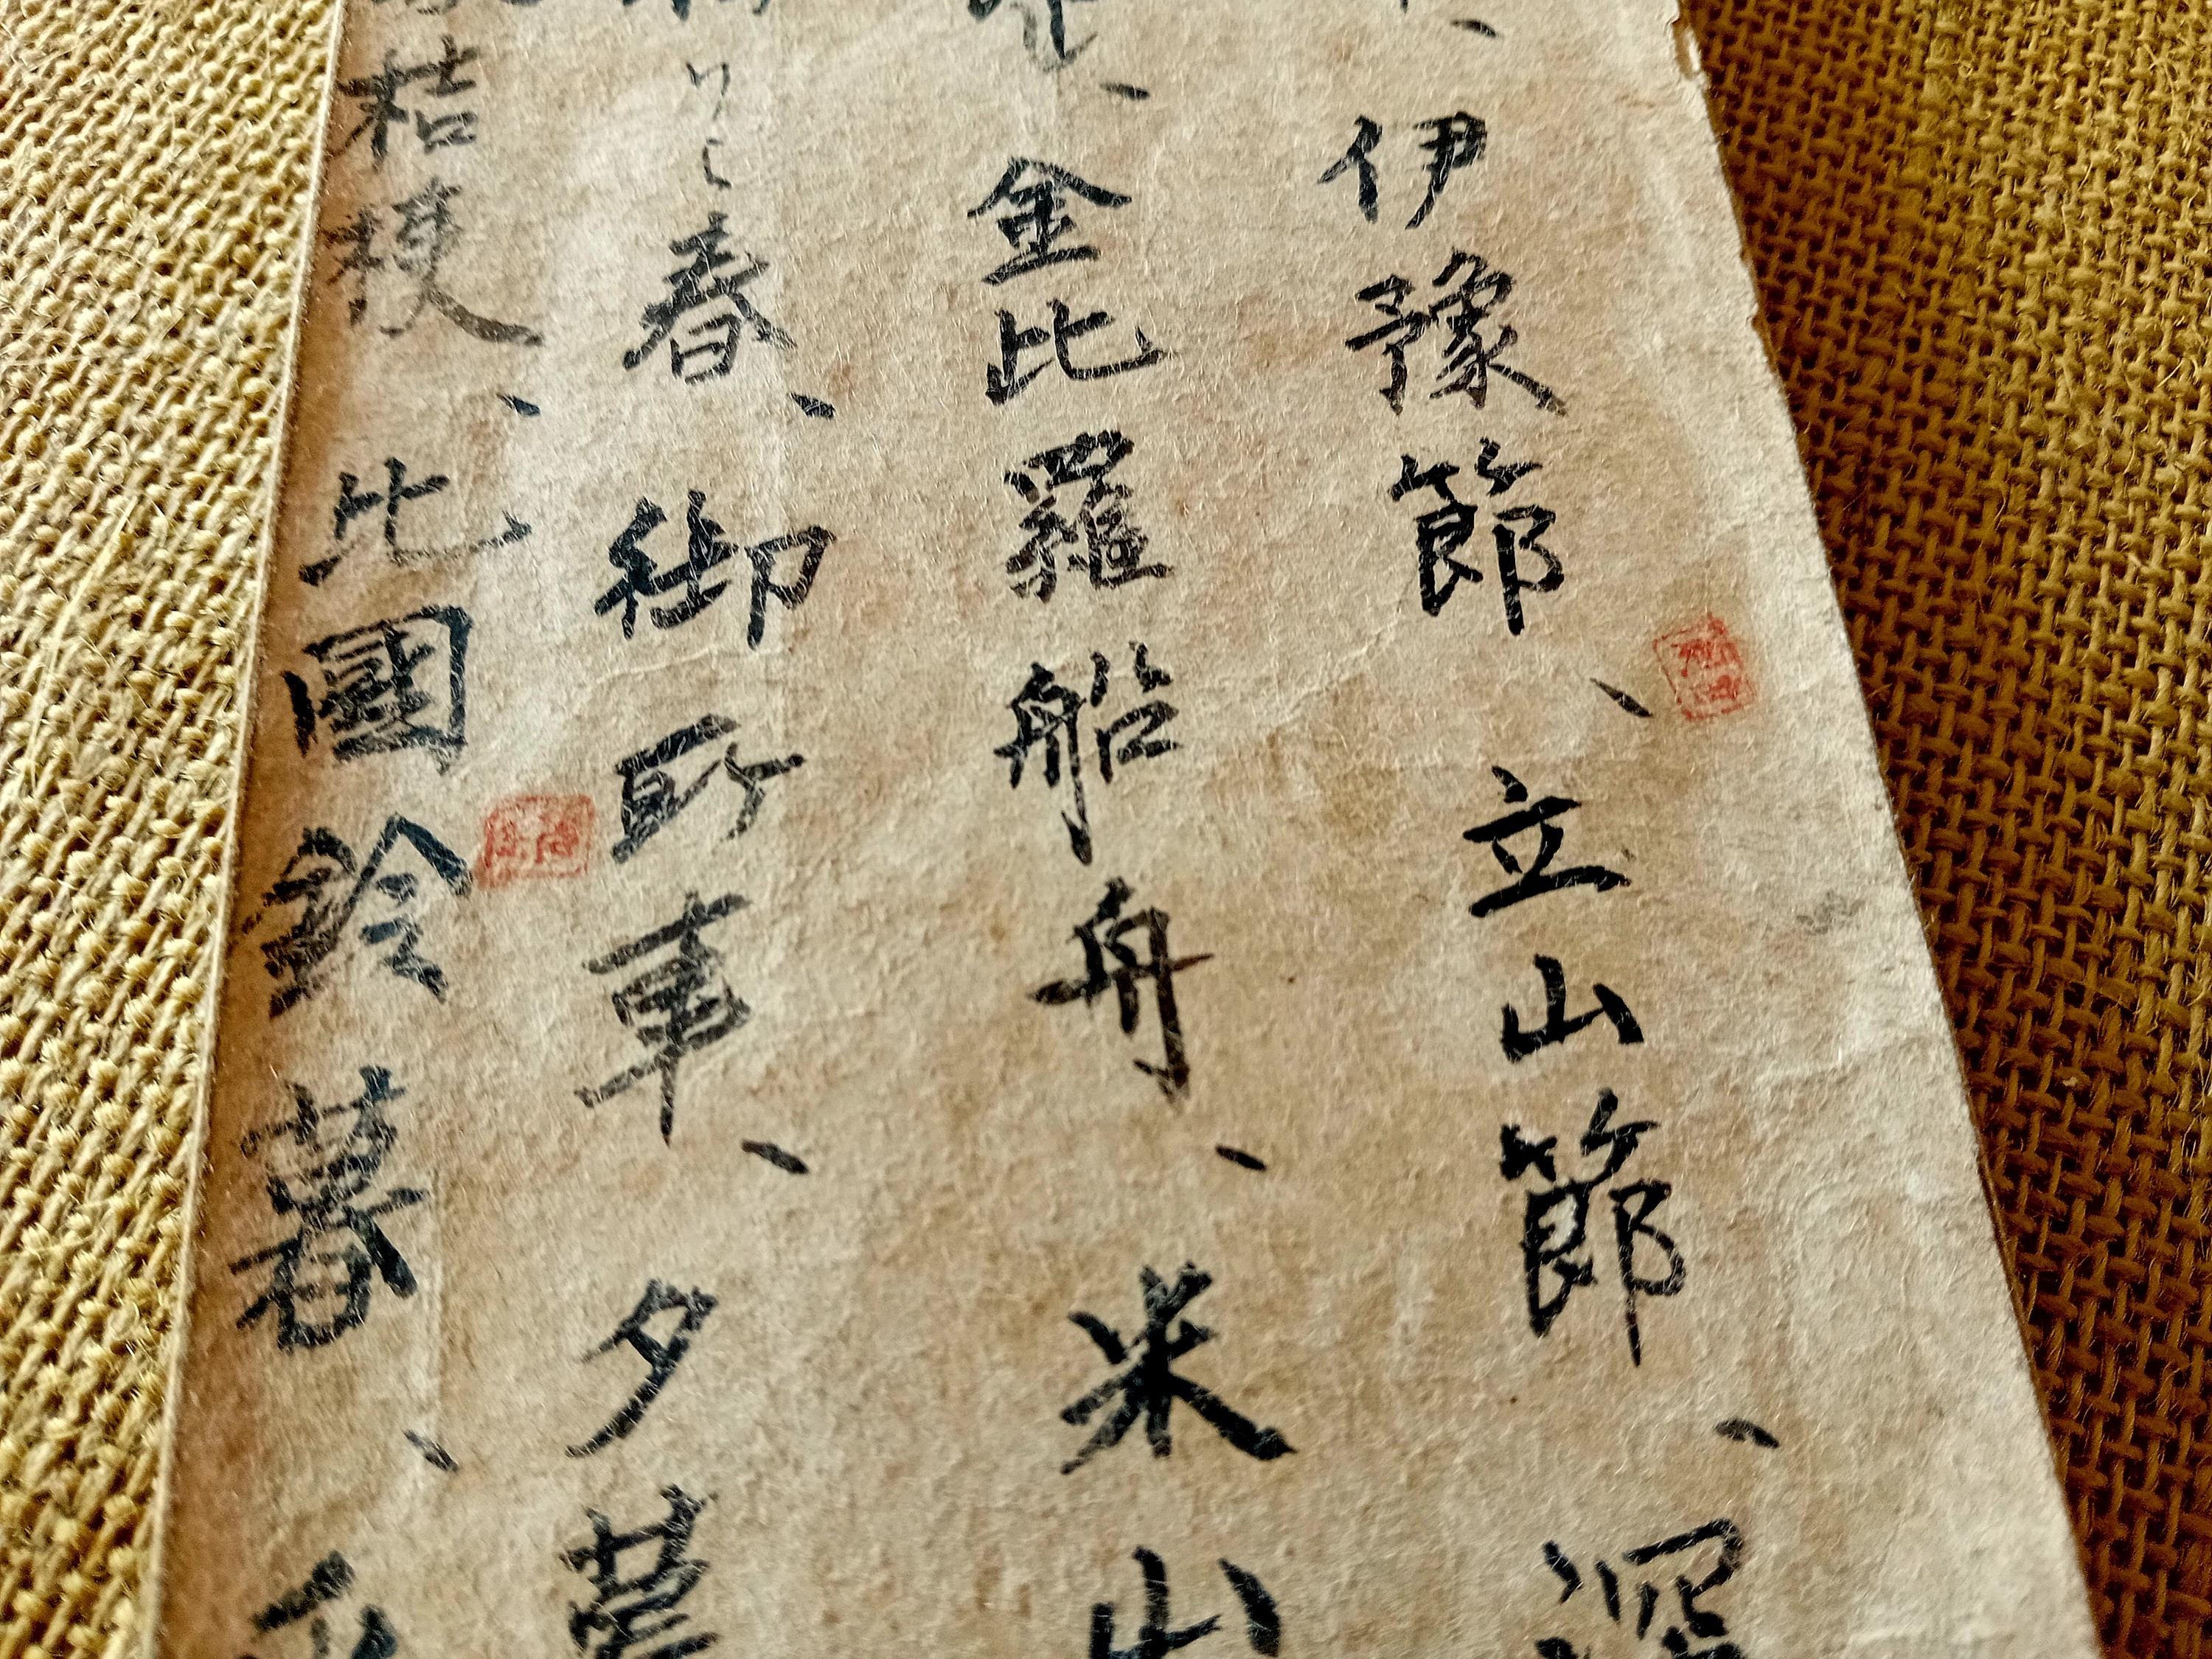 、伊豫節、立山節、深
、金比羅船舟、米山
春、御所車、夕暮
桔梗、比國鈴暮、